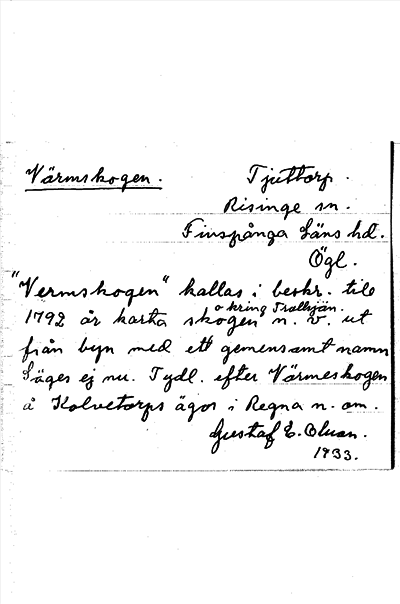 Värmskogen.
Tjuttorp.
Risinge sn.
Finspånga Läns hd.
Ögl.
"Vermskogen" kallas i beskr. till
1792 år karta skogen o kring Trolltjän. n. v. ut
från byn med ett gemensamt namn
Säges ej nu. Tydl. efter Värmeskogen
å Kolvetorps ägor i Regna n. om.
Gustaf E. Olsson.
1933.